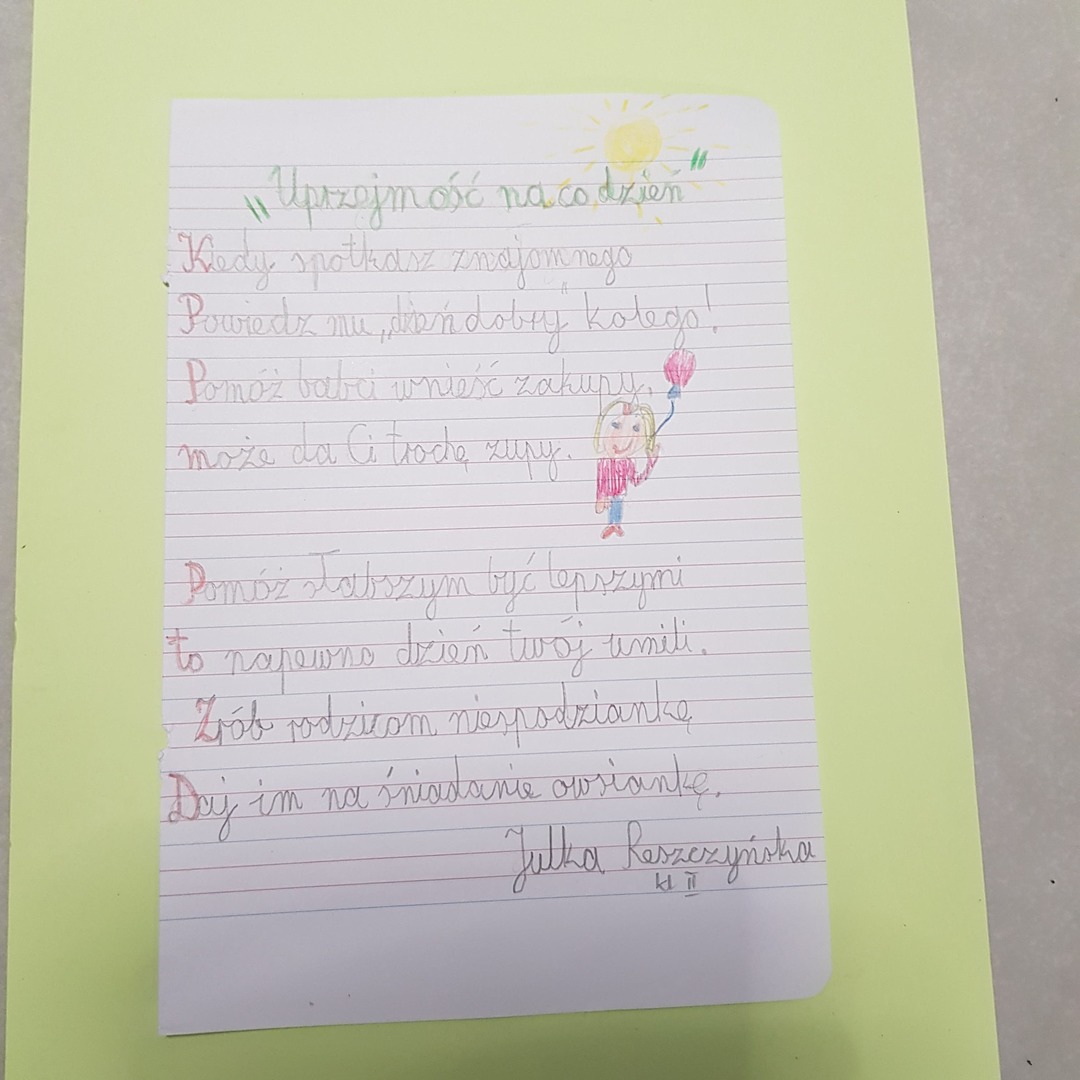 „Uprzejmość na co dzień”
Kiedy spotkasz znajomnego
Powiedz mu „dzień dobry” kolego!
Pomóż babci wnieść zakupy,
może da Ci trochę zupy.
Pomóż słabszym być lepszymi
to napewno dzień twój umili.
Zrób rodzicom niespodziankę
Daj im na śniadanie owsiankę.
Julka Reszczyńska
kl II